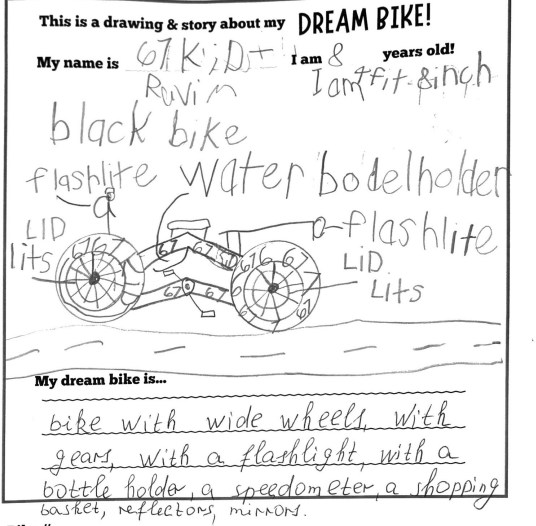 This is a drawing & story about my DREAM BIKE!
My name is 67 KiD + I am 8 years old!
Ruvim I am 4 fit 8 inch
black bike
flashlite water bodelholder
LID flashlite
lits LiD
Lits
67 67 67 67 67
67 67
My dream bike is...
bike with wide wheels, with
gears, with a flashlight, with a
bottle holder, a speedometer, a shopping
basket, reflectors, mirrors.